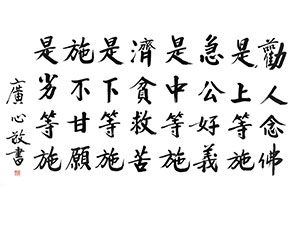 勸人念佛
是上等施
急公好義
是中等施
濟貧救苦
是下等施
施不甘願
是劣等施
廣心敬書